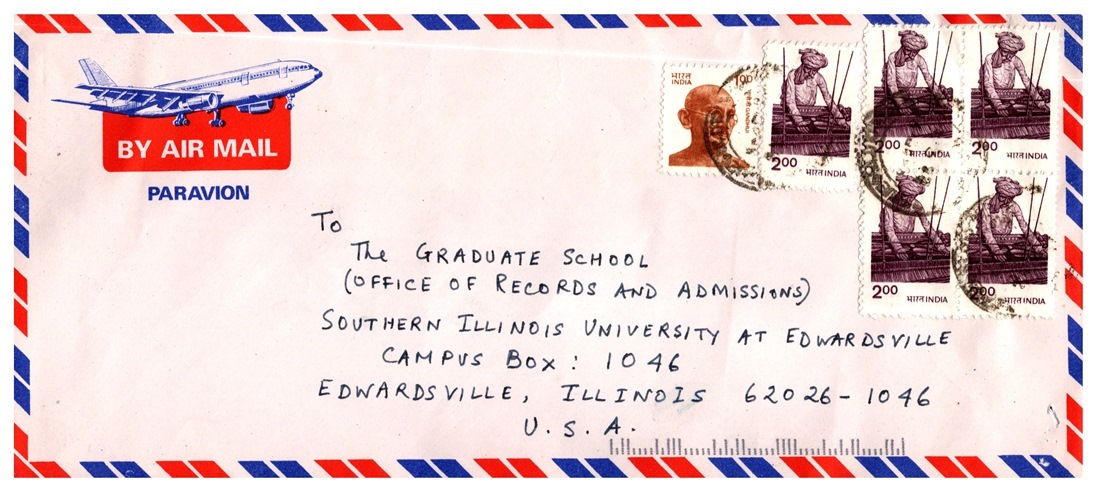 BY AIR MAIL
PARAVION
भारत
INDIA
गांधी GANDHI
2.00
भारत INDIA
2.00
भारत INDIA
2.00
भारत INDIA
2.00
भारत INDIA
2.00
भारत INDIA
To
The GRADUATE SCHOOL
(OFFICE OF RECORDS AND ADMISSIONS)
SOUTHERN ILLINOIS UNIVERSITY AT EDWARDSVILLE
CAMPUS BOX : 1046
EDWARDSVILLE, ILLINOIS 62026-1046
U. S. A.